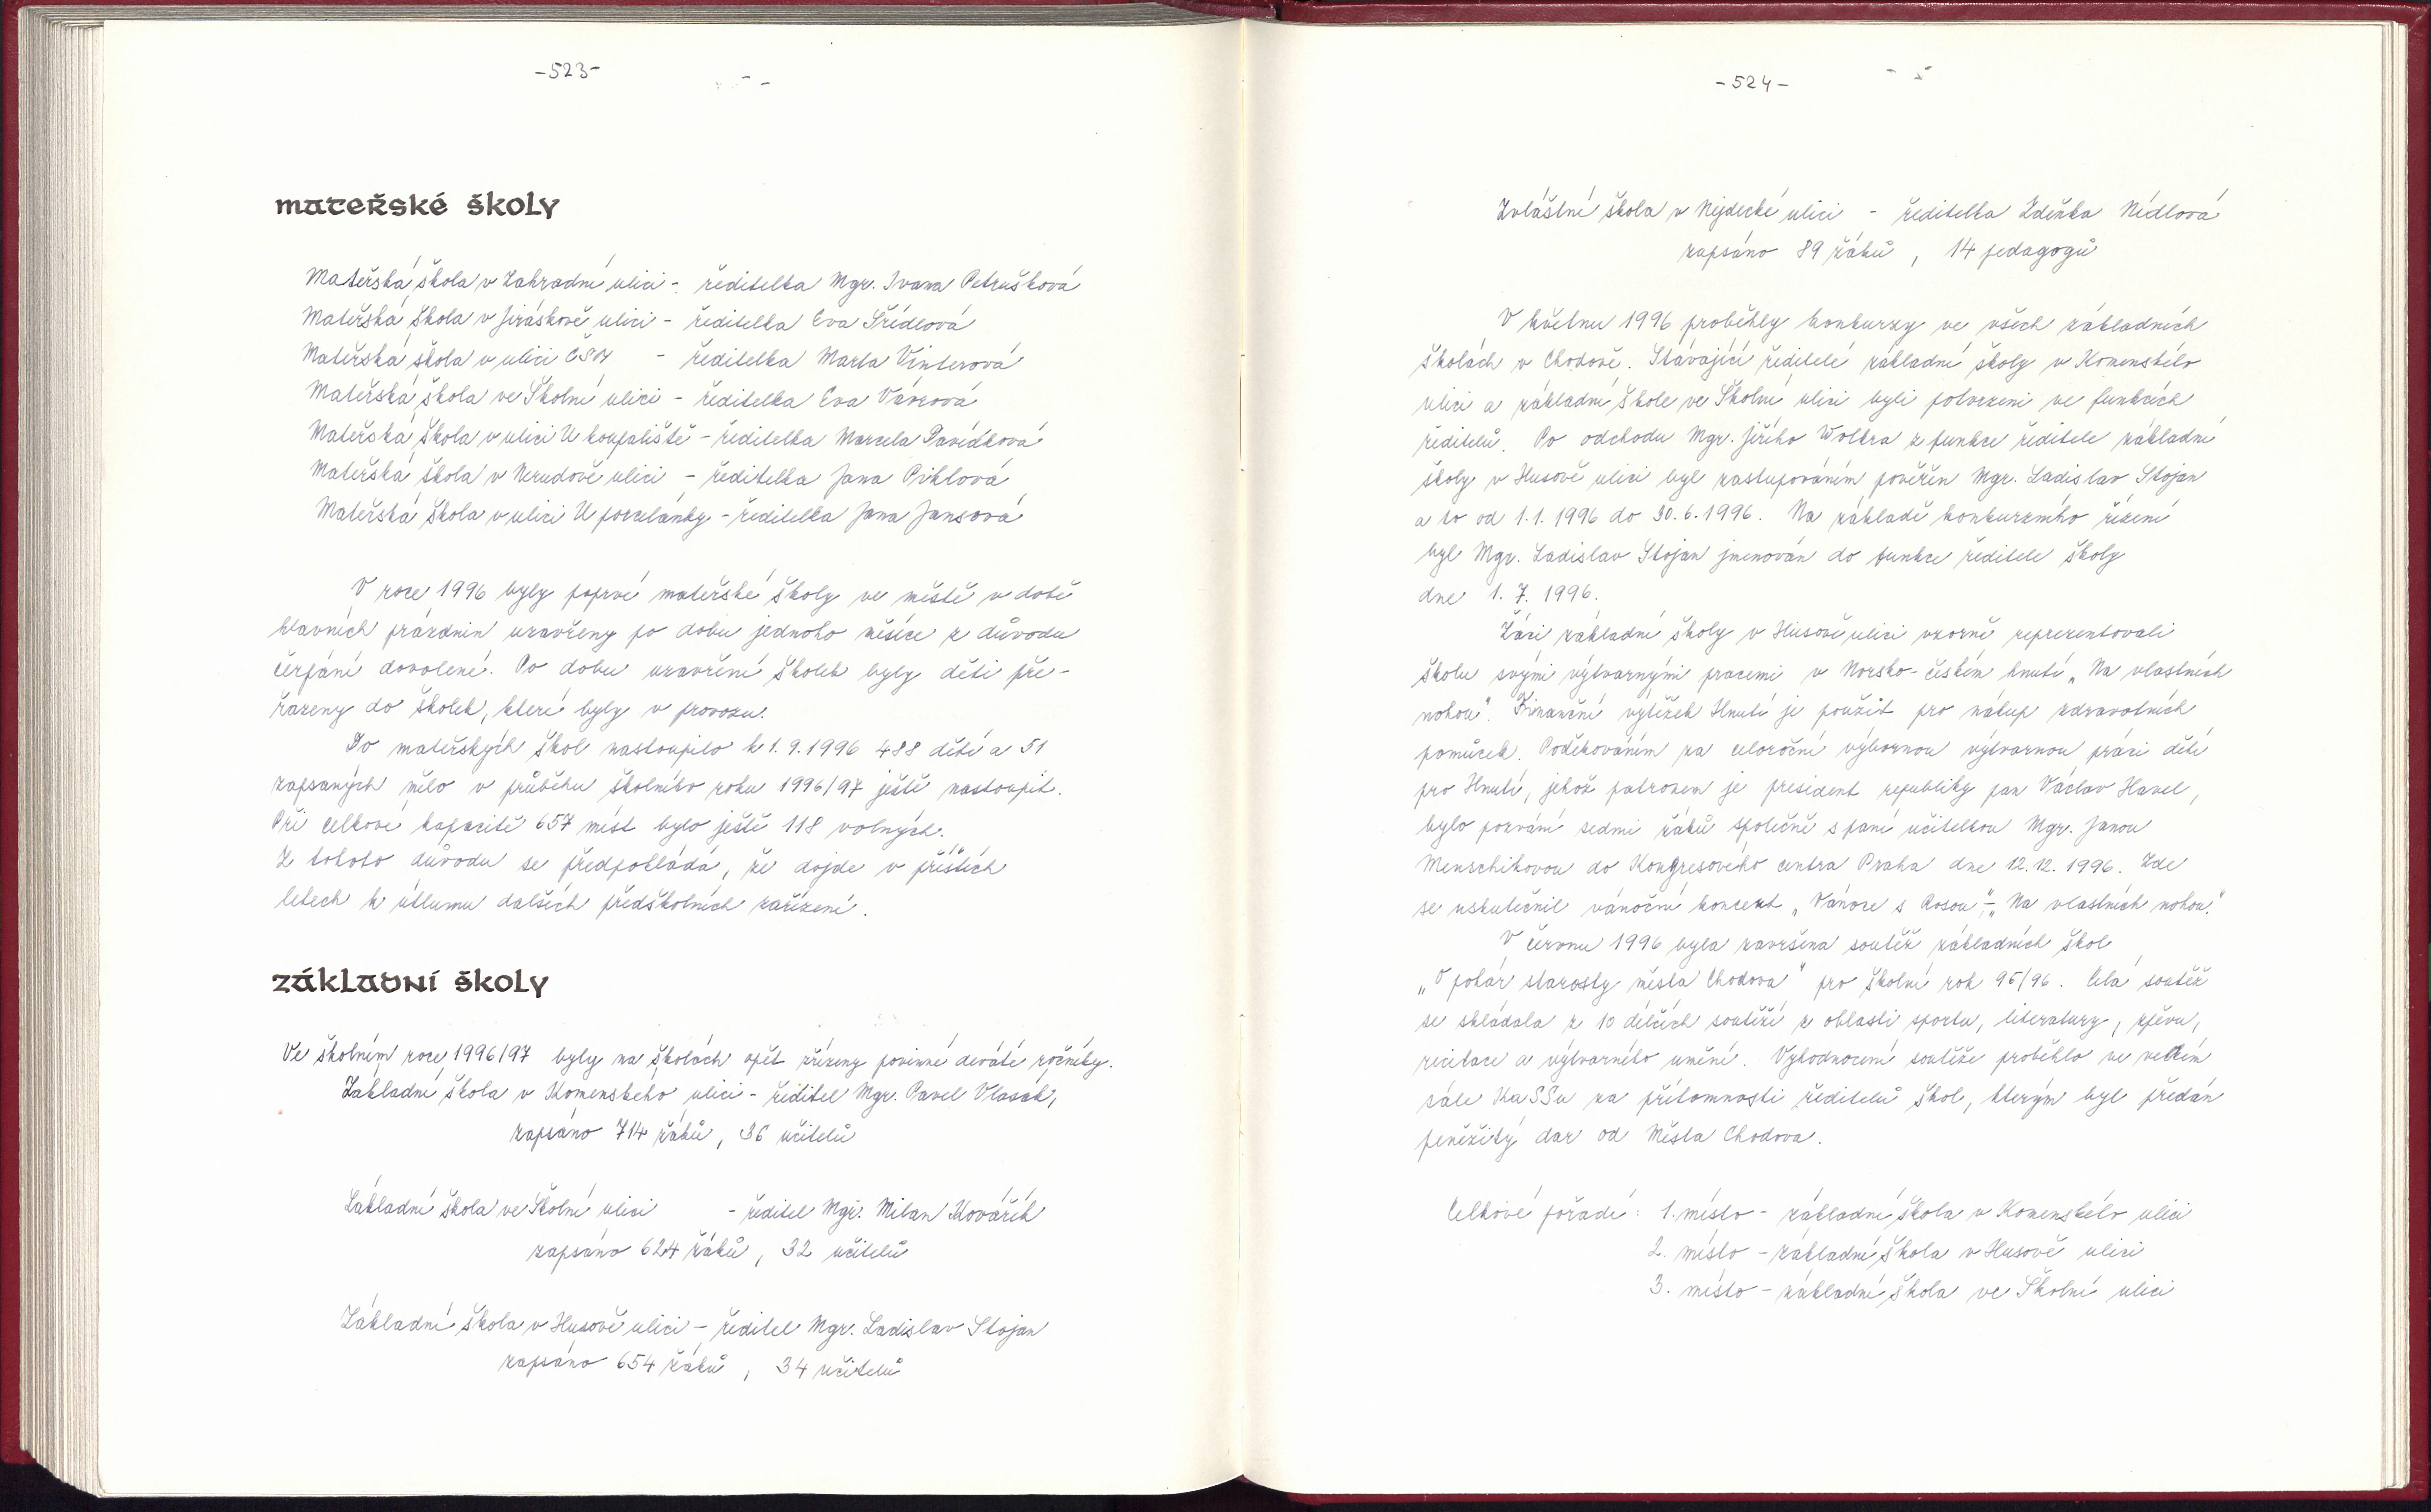 -523-
mateřské školy
Mateřská škola v Zahradní ulici - ředitelka Mgr. Ivana Petrušková
Mateřská škola v Jiráskově ulici - ředitelka Eva Šrédlová
Mateřská škola v ulici ČSM - ředitelka Marta Vinterová
Mateřská škola ve Školní ulici - ředitelka Eva Vávrová
Mateřská škola v ulici U koupaliště - ředitelka Marcela Davídková
Mateřská škola v Nerudově ulici - ředitelka Jana Piklová
Mateřská škola v ulici U porcelánky - ředitelka Jana Jansová
V roce 1996 byly poprvé mateřské školy ve městě v době
hlavních prázdnin uzavřeny po dobu jednoho měsíce z důvodu
čerpání dovolené. Po dobu uzavření školek byly děti pře-
řazeny do školek, které byly v provozu.
Do mateřských škol nastoupilo k 1.9.1996 488 dětí a 51
zapsaných mělo v průběhu školního roku 1996/97 ještě nastoupit.
Při celkové kapacitě 657 míst bylo ještě 118 volných.
Z tohoto důvodu se předpokládá, že dojde v příštích
letech k útlumu dalších předškolních zařízení.
základní školy
Ve školním roce 1996/97 byly na školách opět zřízeny povinné deváté ročníky.
Základní škola v Komenského ulici - ředitel Mgr. Pavel Vlasák,
zapsáno 714 žáků, 36 učitelů
Základní škola ve Školní ulici - ředitel Mgr. Milan Kovářík
zapsáno 624 žáků, 32 učitelů
Základní škola v Husově ulici - ředitel Mgr. Ladislav Stojan
zapsáno 654 žáků, 34 učitelů
-524-
Zvláštní škola v Nejdecké ulici - ředitelka Zdeňka Nédlová
zapsáno 89 žáků, 14 pedagogů
V květnu 1996 proběhly konkurzy ve všech základních
školách v Chodově. Stávající ředitelé základní školy v Komenského
ulici a základní škole ve Školní ulici byli potvrzeni ve funkcích
ředitelů. Po odchodu Mgr. Jiřího Wolkra z funkce ředitele základní
školy v Husově ulici byl zastupováním pověřen Mgr. Ladislav Stojan
a to od 1.1.1996 do 30.6.1996. Na základě konkurzního řízení
byl Mgr. Ladislav Stojan jmenován do funkce ředitele školy
dne 1.7.1996.
Žáci základní školy v Husově ulici vzorně reprezentovali
školu svými výtvarnými pracemi v Norsko-českém hnutí „Na vlastních
nohou". Finanční výtěžek Hnutí je použit pro nákup zdravotních
pomůcek. Poděkováním za celoroční výbornou výtvarnou práci dětí
pro Hnutí, jehož patronem je president republiky pan Václav Havel,
bylo pozvání sedmi žáků společně s paní učitelkou Mgr. Janou
Menschikovou do Kongresového centra Praha dne 12.12.1996. Zde
se uskutečnil vánoční koncert „Vánoce s Rosou" - „Na vlastních nohou."
V červnu 1996 byla završena soutěž základních škol
„O pohár starosty města Chodova" pro školní rok 95/96. Celá soutěž
se skládala z 10 dílčích soutěží z oblasti sportu, literatury, zpěvu,
recitace a výtvarného umění. Vyhodnocení soutěže proběhlo ve velkém
sále KaSSu za přítomnosti ředitelů škol, kterým byl předán
peněžitý dar od Města Chodova.
Celkové pořadí: 1. místo - základní škola v Komenského ulici
2. místo - základní škola v Husově ulici
3. místo - základní škola ve Školní ulici